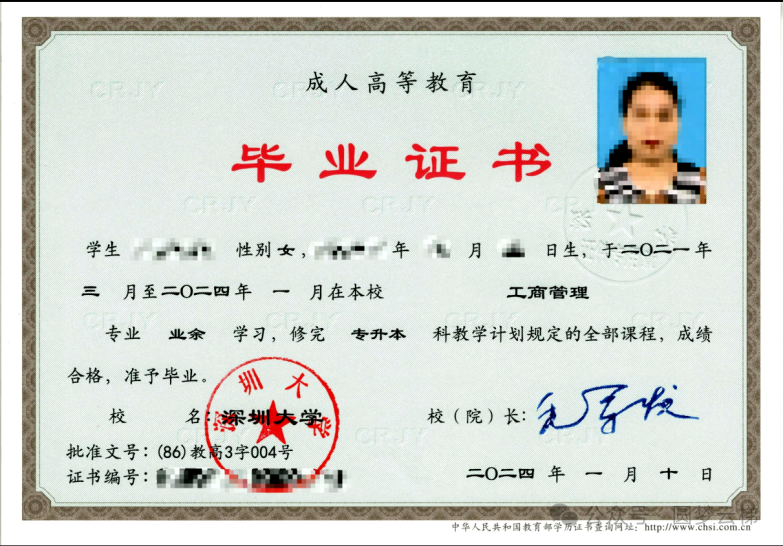 成人高等教育
毕业证书
学生 性别 女, 年 月 日生, 于二〇二一年
三 月至二〇二四年 一 月在本校 工商管理
专业 业余 学习, 修完 专升本 科教学计划规定的全部课程, 成绩
合格, 准予毕业。
深圳大学
校 名: 深圳大学 校(院)长:
批准文号: (86)教高3字004号
证书编号: 二〇二四 年 一 月 十 日
公众号·圆梦云梯
中华人民共和国教育部学历证书查询网址: http://www.chsi.com.cn
CRJY CRJY CRJY
CRJY CRJY CRJY